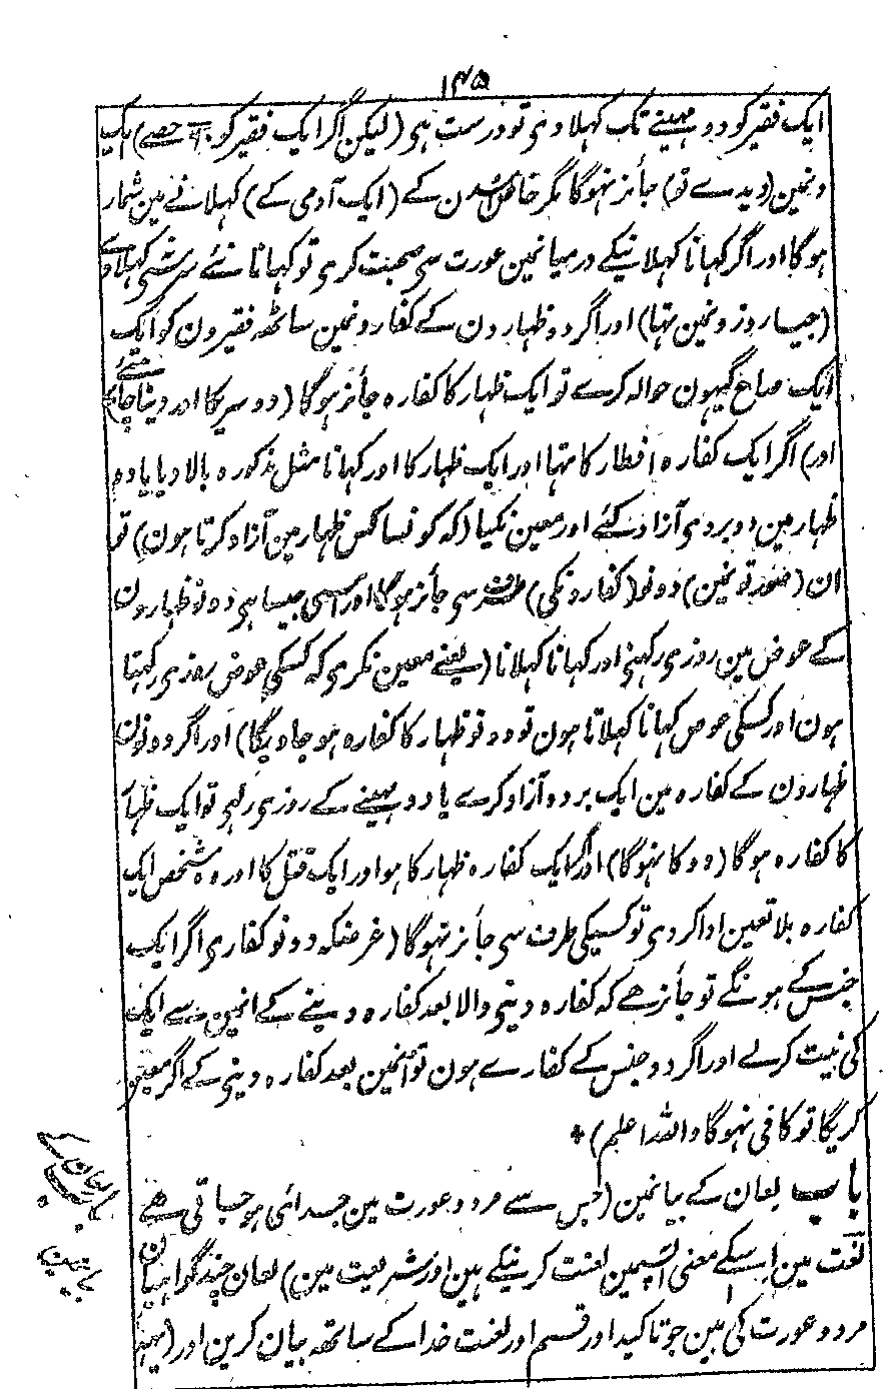 ۱۴۵
ایک فقیر کو دو مہینے تک کہلا وی تو درست ہی (لیکن اگر ایک فقیر کو حصے) ایک
دنمین (دیدے تو) جائز نہوگا مگر خاص اسدن کے (ایک آدمی کے) کہلانے مین شمار
ہوگا اور اگر کہانا کہلانیکے درمیانمین عورت سی صحبت کری تو کہانا نئے سر سی کہلاوے
(جیسا روزونمین تہا) اور اگر دو ظہارون کے کفارونمین ساٹھ فقیرون کو ایک
ایک صاع گیہون حوالہ کرے تو ایک ظہار کا کفارہ جائز ہوگا (دوسریکا اور دینا چاہئے
اور) اگر ایک کفارہ افطار کا تہا اور ایک ظہار کا اور کہانا مثل مذکورہ بالا دیا یا دو
ظہار مین دو بردی آزاد کئے اور معین نکیا (کہ کونسا کس ظہار مین آزاد کرتا ہون) تو
ان (صورتونمین) دونو (کفارونکی) طرف سی جائز ہوگا اور اسی جیسا ہی دو نو ظہارون
کے عوض مین روزی رکہنی اور کہانا کہلانا (یعنے معین نکری کہ کسکی عوض روزی رکہتا
ہون اور کسکی عوض کہانا کہلاتا ہون تو دونو ظہار کا کفارہ ہو جاویگا) اور اگر دونون
ظہارون کے کفارہ مین ایک بردہ آزاد کرے یا دو مہینے کے روزی رکہی تو ایک ظہار
کا کفارہ ہوگا (دو کا نہوگا) اور اگر ایک کفارہ ظہار کا ہو اور ایک قتل کا اور وہ شخص ایک
کفارہ بلا تعین ادا کردی تو کسیکی طرف سی جائز نہوگا (غرضکہ دونو کفاری اگر ایک
جنس کے ہونگے تو جائز ہے کہ کفارہ دینی والا بعد کفارہ دینے کے انمین سے ایک
کی نیت کرلے اور اگر دو جنس کے کفارے ہون تو انمین بعد کفارہ دینی کے اگر معین
کریگا تو کافی نہوگا واللہ اعلم) *
باب لعان کے بیانمین (جس سے مرد و عورت مین جدائی ہوجاتی ہے
لغت مین اسکے معنی آپسمین لعنت کرنیکے ہین اور شریعت مین) لعان چند گواہیان
مرد و عورت کی ہین جو تاکید اور قسم اور لعنت خدا کے ساتھ بیان کرین اور (یہہ
باب لعان کے
بیانمین